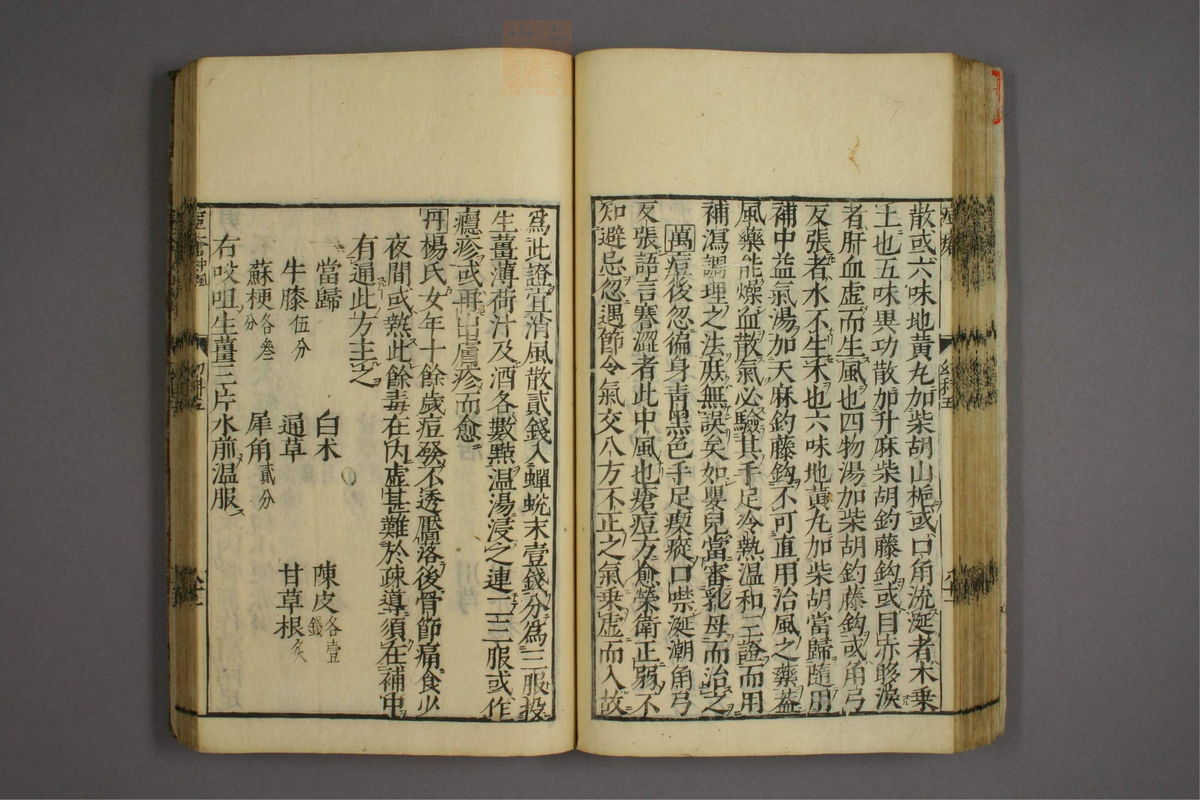 散或六味地黃丸加柴胡山梔或口角流涎者木乗
土也五味異功散加升麻柴胡釣藤鈎或目赤眵淚
者肝血虚而生風也四物湯加柴胡釣藤鈎或角弓
反張者水不生木也六味地黃丸加柴胡當歸隨用
補中益氣湯加天麻釣藤鈎不可直用治風之藥葢
風藥能燥血散氣必驗其手足冷熱温和三證而用
補瀉調理之法庶無誤矣如嬰兒當審乳母而治之
萬痘後忽徧身青黑色手足瘈瘲口噤涎潮角弓
反張語言蹇澀者此中風也瘡痘方愈榮衛正弱不
知避忌忽遇節令氣交八方不正之氣乗虚而入故
爲此證宜消風散貳錢入蟬蛻末壹錢分爲三服投
生薑薄荷汁及酒各數㸃温湯浸之連二三服或作
癮疹或再出膚疹而愈
丹楊氏女年十餘歲痘發不透靨落後骨節痛食少
夜間或熱此餘毒在内虚甚難於疎導須在補中
有通此方主之
當歸 白术 陳皮各壹錢
牛膝伍分 通草 甘草根炙
蘇梗各叁分 犀角貳分
右㕮咀生薑三片水煎温服